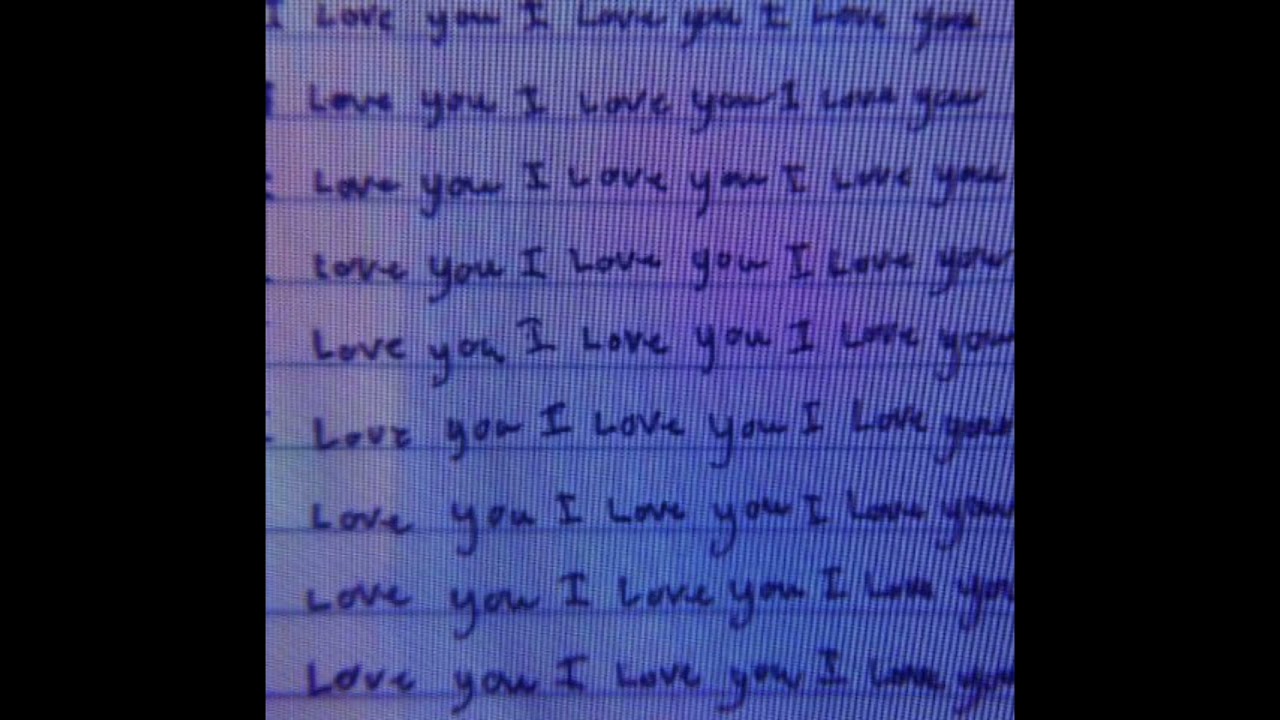 I Love you I Love you I Love you
I Love you I Love you I Love you
I Love you I Love you I Love you
Love you I Love you I Love you
Love you I Love you I Love you
I Love you I Love you I Love you
Love you I Love you I Love you
Love you I Love you I Love you
Love you I Love you I Love you